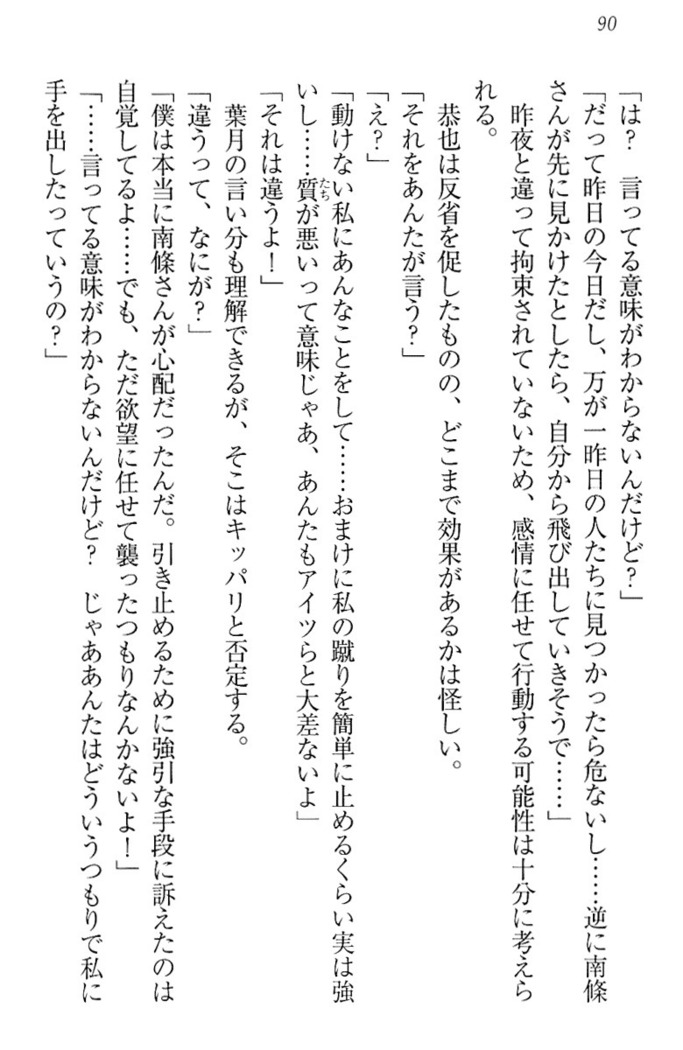 90
「は？　言ってる意味がわからないんだけど？」
「だって昨日の今日だし、万が一昨日の人たちに見つかったら危ないし……逆に南條
さんが先に見かけたとしたら、自分から飛び出していきそうで……」
　昨夜と違って拘束されていないため、感情に任せて行動する可能性は十分に考えら
れる。
　恭也は反省を促したものの、どこまで効果があるかは怪しい。
「それをあんたが言う？」
「え？」
「動けない私にあんなことをして……おまけに私の蹴りを簡単に止めるくらい実は強
いし……質たちが悪いって意味じゃあ、あんたもアイツらと大差ないよ」
「それは違うよ！」
　葉月の言い分も理解できるが、そこはキッパリと否定する。
「違うって、なにが？」
「僕は本当に南條さんが心配だったんだ。引き止めるために強引な手段に訴えたのは
自覚してるよ……でも、ただ欲望に任せて襲ったつもりなんかないよ！」
「……言ってる意味がわからないんだけど？　じゃああんたはどういうつもりで私に
手を出したっていうの？」